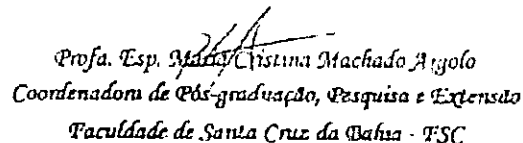 Profa. Esp. Maria Cristina Machado Argolo
Coordenadora de Pós-graduação, Pesquisa e Extensão
Faculdade de Santa Cruz da Bahia - FSC